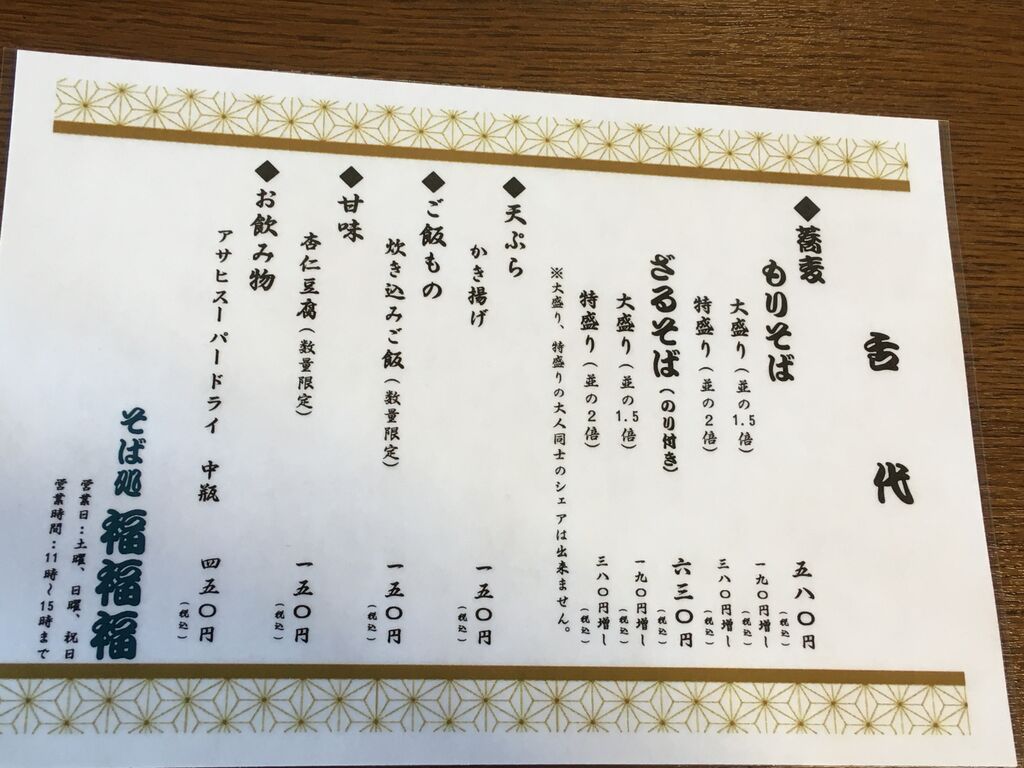 舌代
◆蕎麦
もりそば 五八〇円(税込)
大盛り(並の1.5倍) 一九〇円増し(税込)
特盛り(並の2倍) 三八〇円増し(税込)
ざるそば(のり付き) 六三〇円(税込)
大盛り(並の1.5倍) 一九〇円増し(税込)
特盛り(並の2倍) 三八〇円増し(税込)
※大盛り、特盛りの大人同士のシェアは出来ません。
◆天ぷら
かき揚げ 一五〇円(税込)
◆ご飯もの
炊き込みご飯(数量限定) 一五〇円(税込)
◆甘味
杏仁豆腐(数量限定) 一五〇円(税込)
◆お飲み物
アサヒスーパードライ 中瓶 四五〇円(税込)
そば処 福福福
営業日:土曜、日曜、祝日
営業時間:11時~15時まで